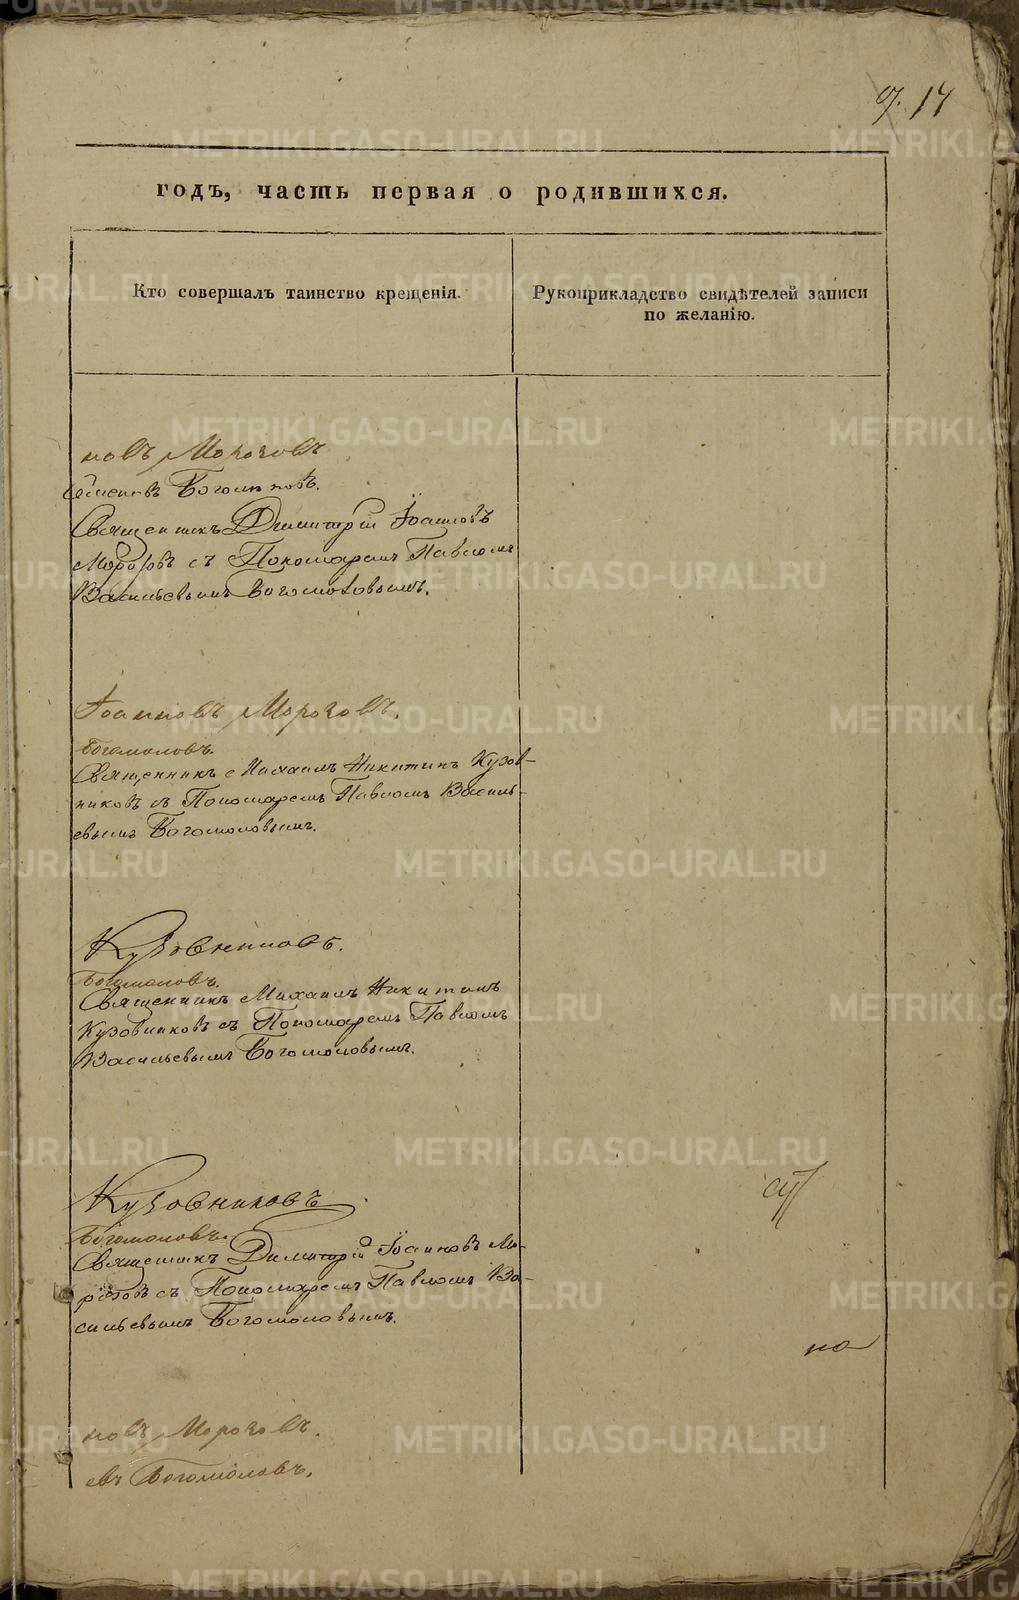 17
годъ, часть первая о родившихся.
Кто совершалъ таинство крещенія.
Рукоприкладство свидѣтелей записи
по желанію.
новъ Морозовъ
Богомоловъ.
Священникъ Димитрій Іоанновъ
Морозовъ съ Пономаремъ Павломъ
Васильевымъ Богомоловымъ.
Іоанновъ Морозовъ.
Богомоловъ.
Священникъ Михаилъ Никитинъ Кузов-
никовъ съ Пономаремъ Павломъ Василь-
евымъ Богомоловымъ.
Кузовниковъ.
Богомоловъ.
Священникъ Михаилъ Никитинъ
Кузовниковъ съ Пономаремъ Павломъ
Васильевымъ Богомоловымъ.
Кузовниковъ
Богомоловъ.
Священникъ Димитрій Іоанновъ Мо-
розовъ съ Пономаремъ Павломъ Ва-
сильевымъ Богомоловымъ.
по
новъ Морозовъ.
евъ Богомоловъ.
METRIKI.GASO-URAL.RU